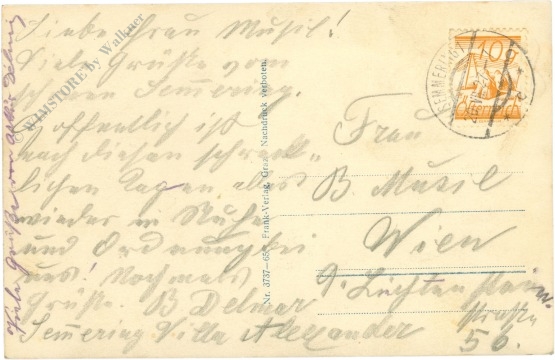 Liebe Frau Musil!
Viele Grüße vom
schönen Semmering.
Hoffentlich ist
nach diesen schreck-
lichen Tagen alles
wieder in Ruhe
und Ordnung bei
uns! Nochmals
Grüße. B Delmar
Semmering Villa Alexander
Viele Grüße von
Delmar
© WIMSTORE by Walkner
Nr. 3737-65 Frank-Verlag, Graz. Nachdruck verboten.
SEMMERING
10
Frau
B. Musil
Wien
9. Liechtenstein
straße
56.